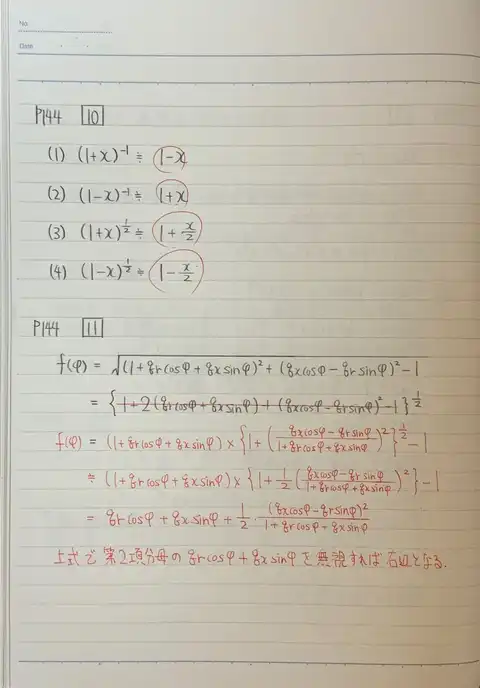 No.
Date
P144 10
(1) (1+x)⁻¹ ≒ 1-x
(2) (1-x)⁻¹ ≒ 1+x
(3) (1+x)^{1/2} ≒ 1+x/2
(4) (1-x)^{1/2} ≒ 1-x/2
P144 11
f(φ) = √((1+qr cosφ+qx sinφ)²+(qx cosφ-qr sinφ)²-1)
= {1+2(qr cosφ+qx sinφ)+(qx cosφ-qr sinφ)²-1}^{1/2}
f(φ) = (1+qr cosφ+qx sinφ)×{1+((qx cosφ-qr sinφ)/(1+qr cosφ+qx sinφ))²}^{1/2}-1
≒ (1+qr cosφ+qx sinφ)×{1+1/2((qx cosφ-qr sinφ)/(1+qr cosφ+qx sinφ))²}-1
= qr cosφ+qx sinφ+1/2・(qx cosφ-qr sinφ)²/(1+qr cosφ+qx sinφ)
上式で第2項分母のqr cosφ+qx sinφを無視すれば右辺となる.